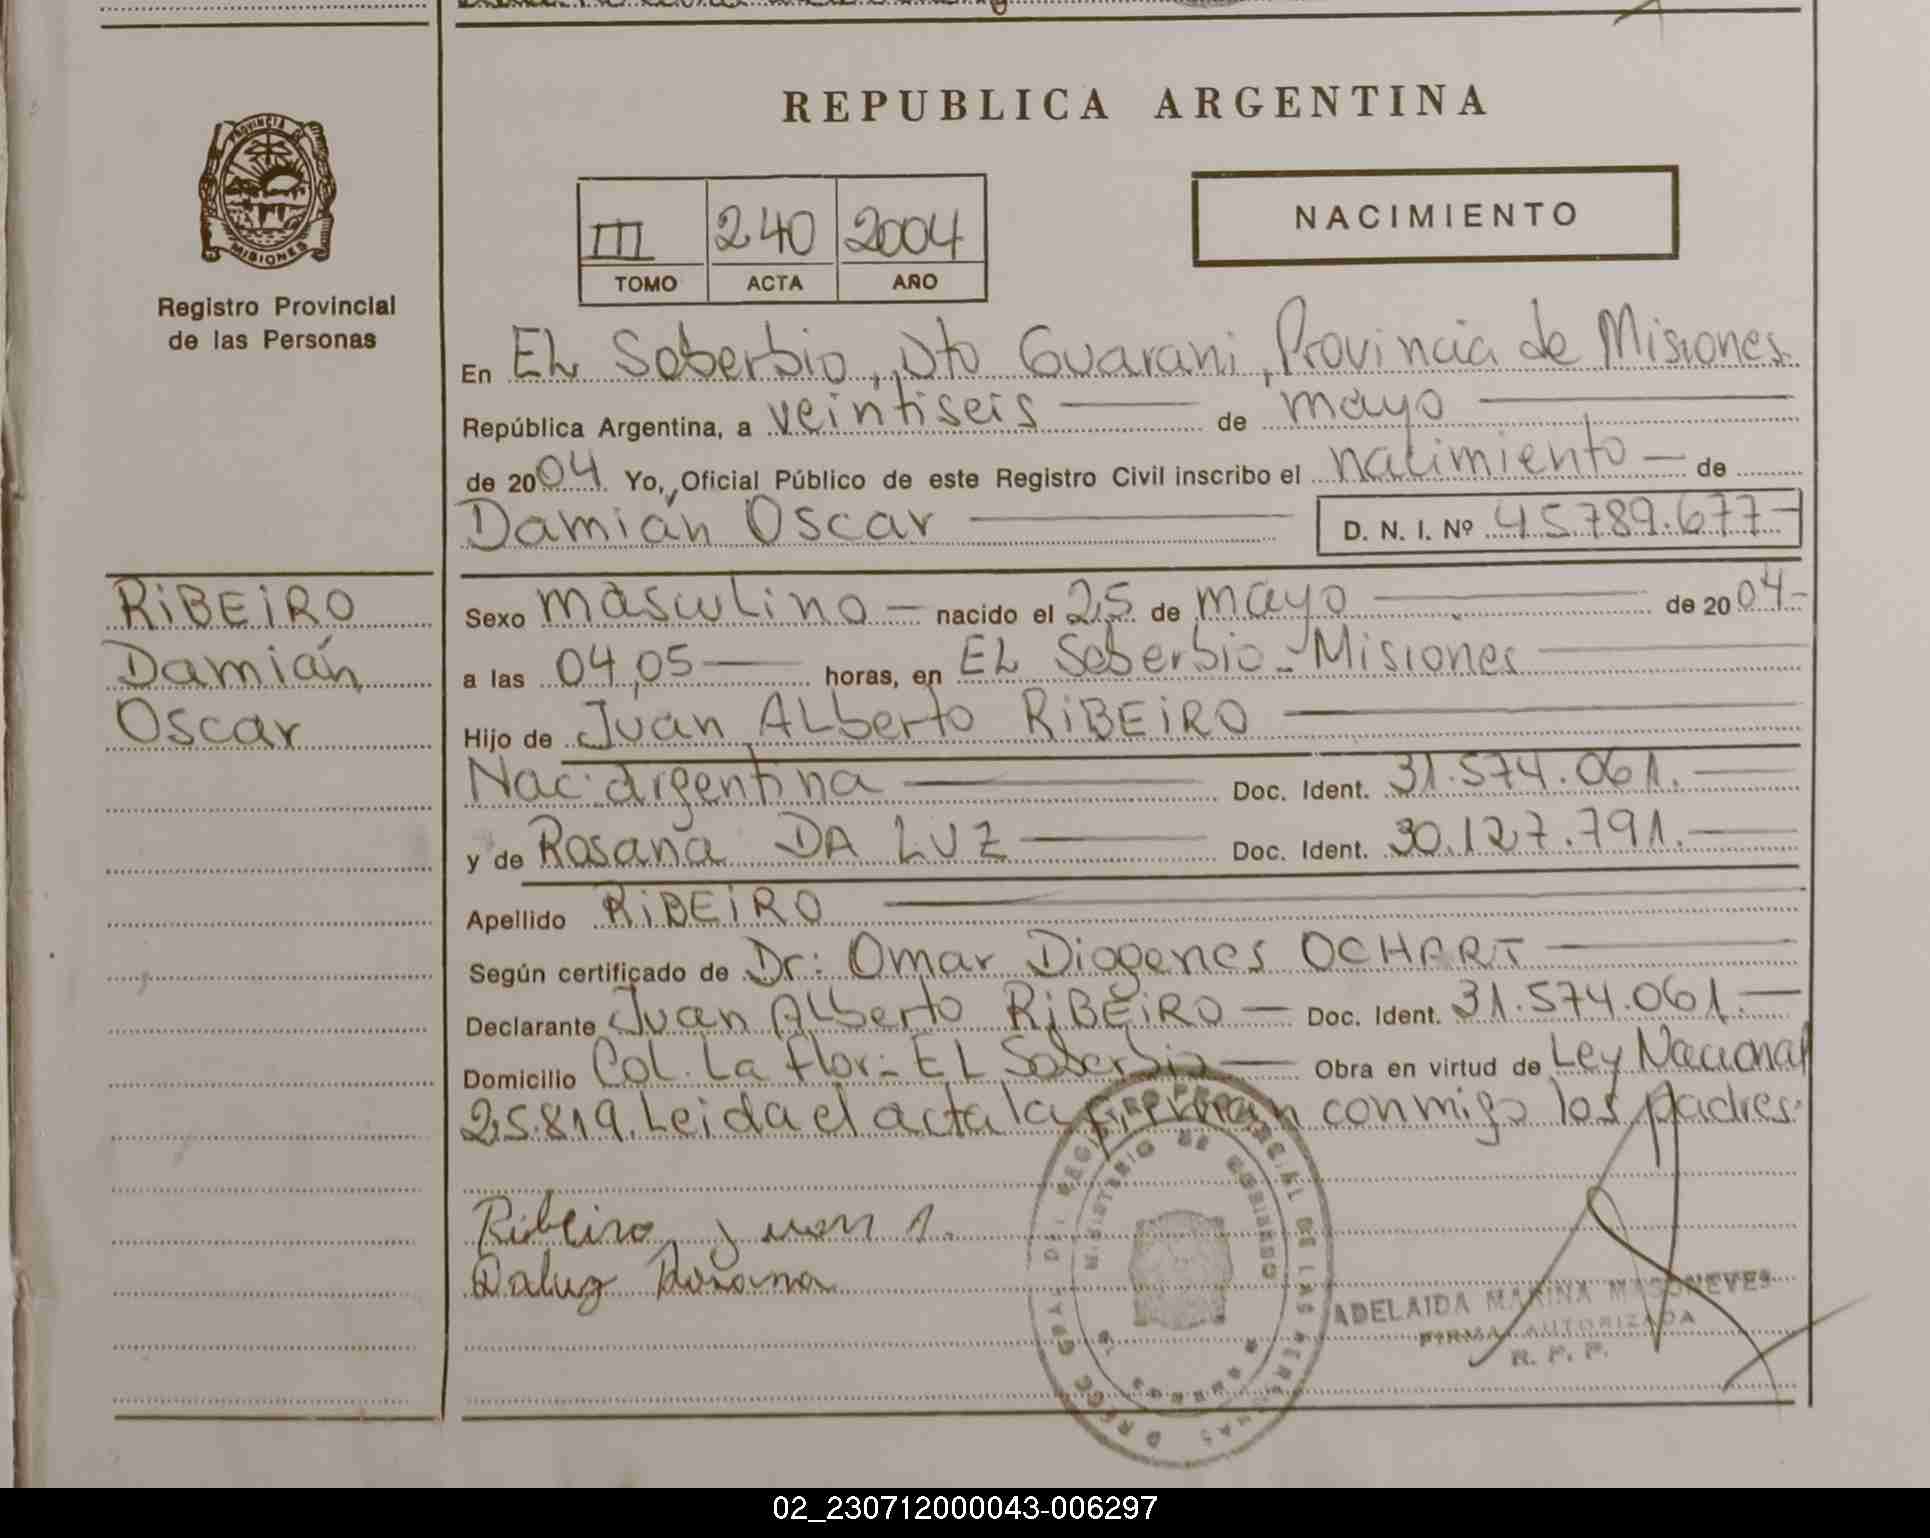 REPUBLICA ARGENTINA
PROVINCIA
MISIONES
Registro Provincial
de las Personas
III 240 2004
TOMO ACTA AÑO
NACIMIENTO
En EL Soberbio, Dto Guarani, Provincia de Misiones.
República Argentina, a veintiseis de mayo
de 2004. Yo, Oficial Público de este Registro Civil inscribo el nacimiento de
Damián Oscar D. N. I. Nº 45.789.677-
RiBEiRO
Damián
Oscar
Sexo masculino nacido el 25 de mayo de 2004-
a las 04,05 horas, en EL Soberbio-Misiones
Hijo de Juan ALberto RiBEiRO
Nac. argentina Doc. Ident. 31.574.061.
y de Rosana DA LUZ Doc. Ident. 30.127.791.
Apellido RiBEiRO
Según certificado de Dr: Omar Diogenes OCHART
Declarante Juan ALberto RiBEiRO Doc. Ident. 31.574.061.
Domicilio Col. La flor-EL Soberbio Obra en virtud de Ley Nacional
25.819. Leida el acta la firman conmigo los padres.
Ribeiro Juan A.
Daluz Rosana
MINISTERIO DE GOBIERNO
ADELAIDA MARINA
FIRMA AUTORIZADA
R. P. P.
02_230712000043-006297